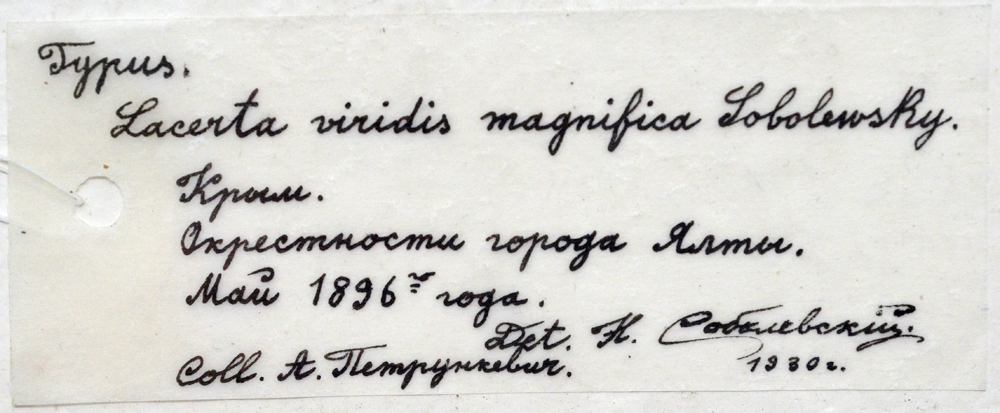 Typus.
Lacerta viridis magnifica Sobolewsky.
Крым.
Окрестности города Ялты.
Май 1896 го года.
Det. Н. Соболевский.
Coll. А. Петрункевич. 1930 г.